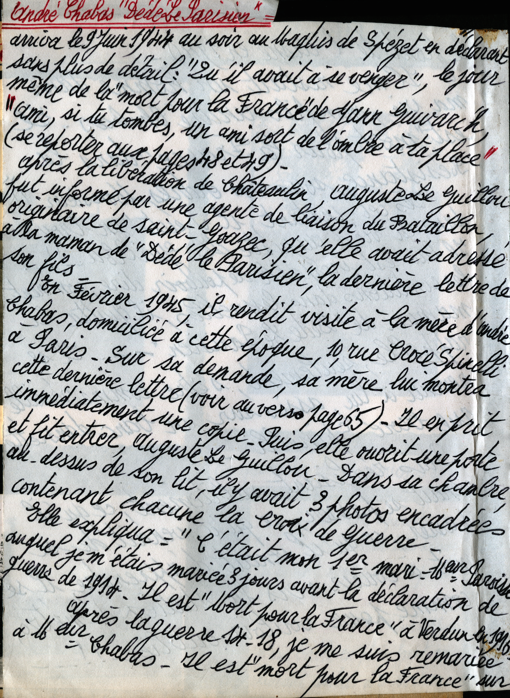 André Chabas "Dédé Le Parisien"
arriva le 9 Juin 1944 au soir au Maquis de Spézet en déclarant
sans plus de détail: "Qu'il avait à se venger", le jour
même de la "mort pour la France" de Yann Guivarc'h,
"ami, si tu tombes, un ami sort de l'ombre à ta place"
(se reporter aux pages 48 et 49)-
après la libération de Châteaulin, auguste Le Guillou
fut informé par une agente de liaison du Bataillon,
originaire de saint-Goazec, qu'elle avait adressé
à la maman de "Dédé le Parisien", la dernière lettre de
son fils-
En Février 1945, il rendit visite à la mère d'andré
Chabas, domicilié à cette époque, 10 rue Croce Spinelli
à Paris- Sur sa demande, sa mère lui montra
cette dernière lettre (voir au verso page 65)- Il en prit
immédiatement une copie- Puis, elle ouvrit une porte
et fit entrer, auguste Le Guillou- Dans sa chambre,
au-dessus de son lit, il y avait 3 photos encadrées
contenant chacune la croix de Guerre-
Elle expliqua= "C'était mon 1er mari- Mr
auquel je m'étais mariée 3 jours avant la déclaration de
guerre de 1914- Il est "Mort pour la France" à Verdun en 1916
après la guerre 14-18, je me suis remariée
à Mr Chabas- Il est "mort pour la France" sur